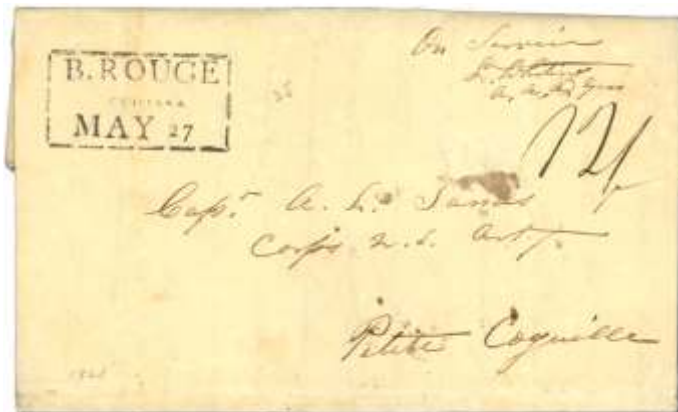 B. ROUGE
MAY 27
On Service
12½
Capt. A. L. Sands
Corps U.S. Arty.
Petite Coquille